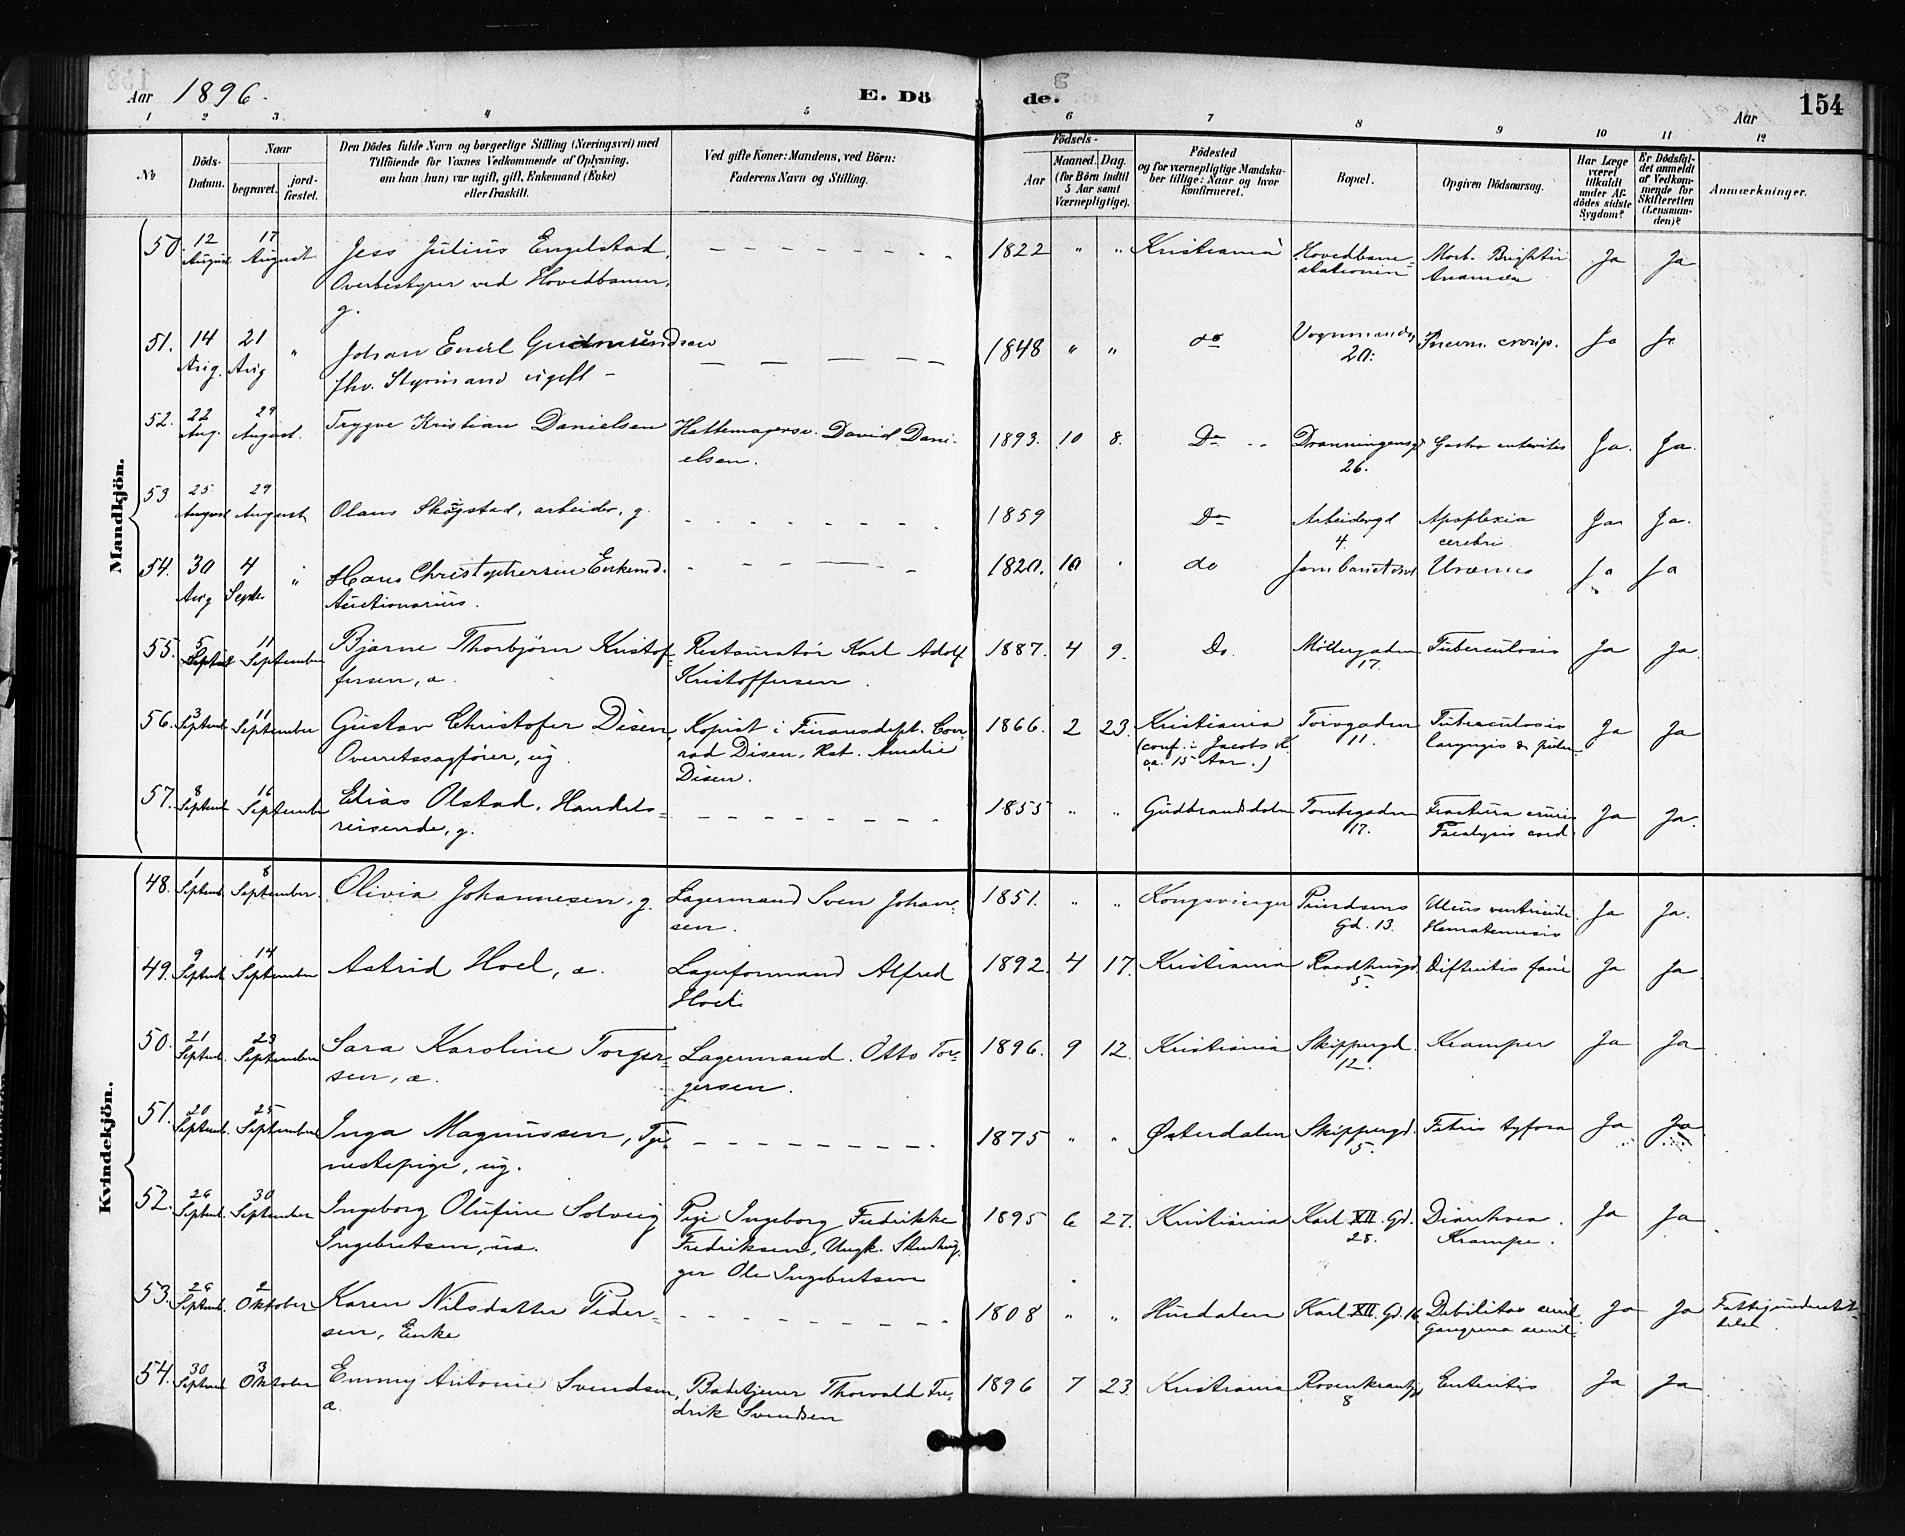 Aar 1896.
E. Dö
de.
Aar
154
1 2 3 4 5 6 7 8 9 10 11 12
No
Döds-Datum.
Naar
begravet.
jord-fæstet.
Den Dödes fulde Navn og borgerlige Stilling (Næringsvei) med
Tilföiende for Voxnes Vedkommende af Oplysning,
om han (hun) var ugift, gift, Enkemand (Enke)
eller fraskilt.
Ved gifte Koner: Mandens, ved Börn:
Faderens Navn og Stilling.
Födsels-
Aar
Maaned. Dag.
(for Börn indtil
5 Aar samt
Værnepligtige).
Födested
og for værnepligtige Mandska-
ber tillige: Naar og hvor
konfirmeret.
Bopæl.
Opgiven Dödsaarsag.
Har Læge
været
tilkaldt
under Af-
dödes sidste
Sygdom?
Er Dödsfal-
det anmeldt
af Vedkom-
mende for
Skifteretten
(Lensman-
den)?
Anmærkninger.
Mandkjön.
50. 12 August 17 August Jess Julius Engelstad, 1822 " " Kristiania Hovedbane- Morb. Brightii Ja Ja
Overbestyrer ved Hovedbanen, stationen
g.
51. 14 Aug. 21 Aug " Johan Emil Gudmundsen 1848 " " do 20. Pneum. croup. Ja Ja
fhv. Styrmand ugift -
52. 22 Aug. 29 August. Trygve Kristian Danielsen Hattemagersv. David Dani- 1893. 10 8. Do Dronningensg. Gastro enteritis Ja. Ja.
elsen. 26.
53 25 August 29 August Olaus Skogstad, arbeider, g. 1859 Do Arbeidergd Apoplexia Ja Ja.
4. cerebri.
54. 30 Aug 4 Septbr " Hans Christophersen Enkemd. 1820. 10 do Jernbanetorvet Uræmus Ja Ja
Auctionarius.
55. 5 Septbr 11 September Bjarne Thorbjörn Kristof- Restauratör Karl Adolf 1887. 4 9. Do. Möllergaden Tuberculosis Ja Ja
fersen, æ. Kristoffersen. 17.
56. 3 Septemb. 11 September Gustav Christofer Disen, Kopist i Finansdept. Con- 1866. 2 23. Kristiania Torvgaden Tuberculosis Ja Ja
Overretssagförer, ug. rad Disen, Kat. Amalie (conf. i Jacobs K. 11. laryngis & pulm.
Disen. ca. 15 Aar.)
57. 8 Septemb. 16 September Elias Olstad, Handels- 1855 " " Gudbrandsdalen Tomtegaden Fractura cruris Ja Ja.
reisende, g. 17. Paralysis cord.
Kvindekjön.
48. 1 Septemb. 8 September. Olivia Johannesen, g. Lagermand Sven Johan- 1851. " " Kongsvinger Prindsens Ulcus ventriculi Ja Ja.
sen. Gd. 13. Hæmatemesis
49. 9 Septemb. 14 September Astrid Hoel, æ. Lagerformand Alfred 1892. 4 17. Kristiania Raadhusgd. Difteritis fauc. Ja Ja
Hoel. 5.
50. 21 Septemb. 23 September Sara Karoline Torger- Lagermand. Otto Tor- 1896. 9 12. Kristiania Skippergd. Kramper Ja Ja
sen, æ. gersen. 12.
51. 20 Septemb. 25 September Inga Magnussen, Tje- 1875 " " Østerdalen Skippergd. Febris tyfosa Ja Ja
nestepige, ug. 5.
52. 26 Septemb. 30 September Ingeborg Olufine Solveig Pige Ingeborg Fredrikke 1895 6 27. Kristiania Karl XII. Gd. Diarrhoea. Ja Ja
Ingebretsen, uæ. Fredriksen, Ungk. Stenhug- 28. Krampe.
ger Ole Ingebretsen
53. 26 Septemb. 2 Oktober Karen Nilsdatter Peder- 1808 " " Hurdalen Karl XII. Gd. 16 Debilitas senil. Ja Ja Fattigunderstöt-
sen, Enke Gangræna senil.
54. 30 Septemb. 3 Oktober Emmy Antonie Svendsen, Badetjener Thorvald Fre- 1896 7 23. Kristiania Rosenkrantzgd Enteritis Ja Ja
æ. drik Svendsen 8